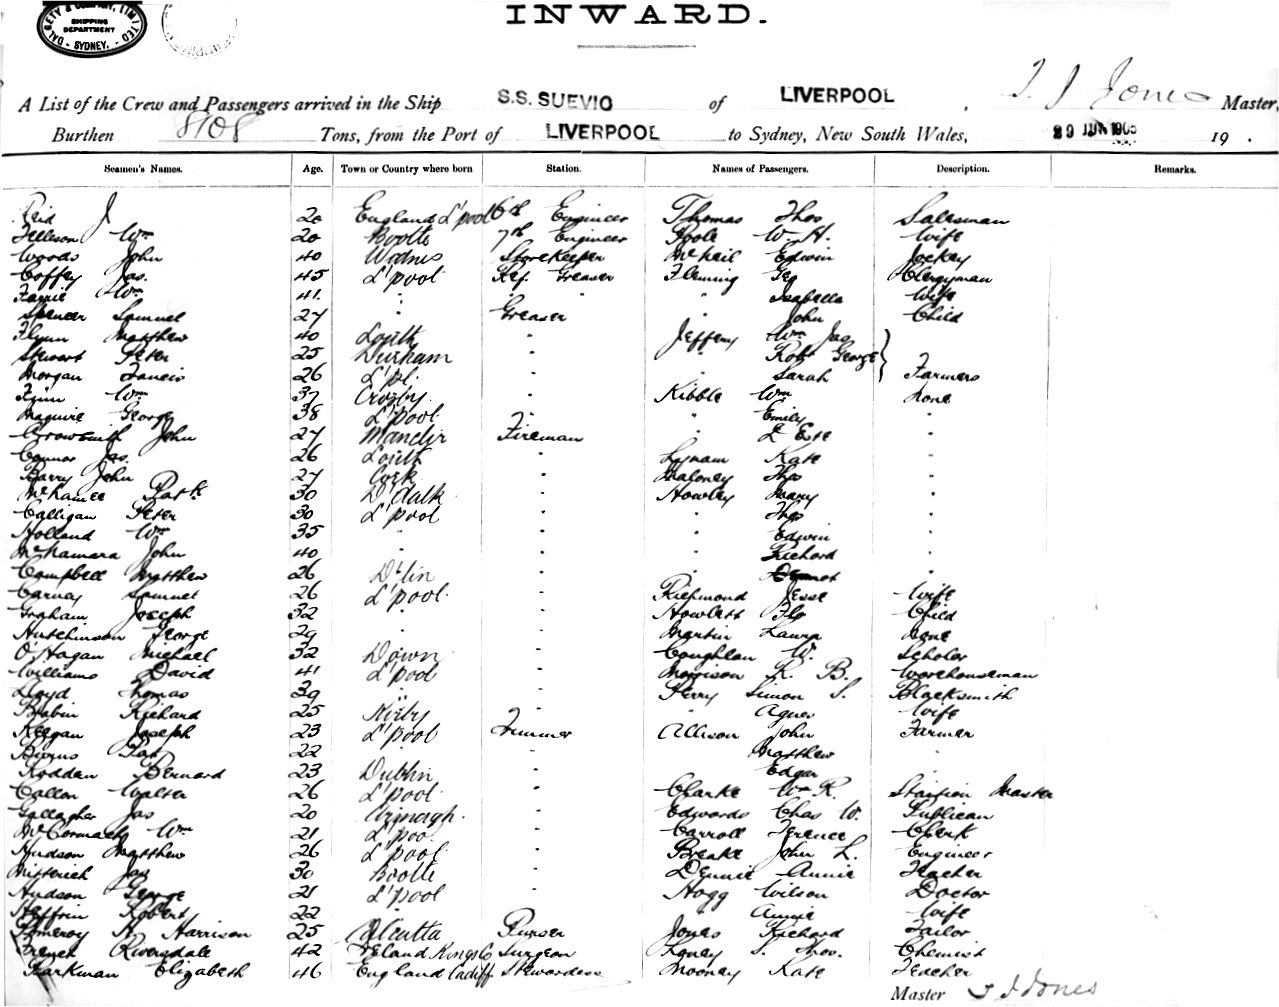 DALGETY & COMPANY, LIMITED
SHIPPING
DEPARTMENT
SYDNEY.
INWARD.
A List of the Crew and Passengers arrived in the Ship S.S. SUEVIC of LIVERPOOL, J J Jones Master,
Burthen 8108 Tons, from the Port of LIVERPOOL to Sydney, New South Wales, 29 JUN 19 .
Seamen's Names. Age. Town or Country where born Station. Names of Passengers. Description. Remarks.
Reid J 20 England L'pool 6th Engineer Thomas Thos Salesman
Wm 20 Bootle 7th Engineer Poole W. H. Wife
Woods John 40 Widnes Storekeeper McNeil Edwin Jockey
Coffey Jas. 45 L'pool Ref. Greaser Fleming Geo Clergyman
Wm 41 " " Isabella Wife
Spencer Samuel 27 Greaser " John Child
Flynn Matthew 40 Louth " Jeffery Wm Jas
Stewart Peter 25 Durham " " Robt George
Morgan Francis 26 L'pl. " " Sarah Farmers
Wm 37 Crosby " Kibble Wm None
Maguire George 38 L'pool " " Emily "
John 27 Fireman " "
Connor Jas. 26 Louth " Lynam Kate "
Barry John 27 Cork " Maloney Thos "
Patk 30 D'dalk " Howley Mary "
Calligan Peter 30 L'pool " " Thos "
Holland Wm 35 " " " Edwin "
McNamara John 40 " " " Richard "
Campbell Matthew 26 D'lin " " "
Carney Samuel 26 L'pool " Richmond Jesse Wife
Graham Joseph 32 " " Howlett Flo Child
Hutchinson George 29 " " Martin Laura None
O'Hagan Michael 32 Down " Coughlan W. Scholar
Williams David 41 L'pool " Morrison R. B. Warehouseman
Lloyd Thomas 39 " " Perry Simon S. Blacksmith
Brabin Richard 25 Kirby " " Agnes Wife
Keegan Joseph 23 L'pool Trimmer Allison John Farmer
Pat 22 " " " Matthew "
Rodden Bernard 23 Dublin " " Edgar "
Callon Walter 26 L'pool " Clarke Wm R. Station Master
Gallagher Jas 20 Armagh " Edwards Chas W. Publican
McCormack Wm 21 L'poo " Carroll Terence Clerk
Hudson Matthew 26 L'pool " Breake John L. Engineer
Jas 30 Bootle " Dennie Annie Teacher
Hudson George 21 L'pool " Hogg Wilson Doctor
Heffrin Robert 22 " " " Annie Wife
Pomeroy H. Harrison 25 Calcutta Purser Jones Richard Tailor
French Riversdale 42 Ireland Kings Co Surgeon Chemist
Elizabeth 46 England Cardiff Stewardess Mooney Kate Teacher
Master J J Jones